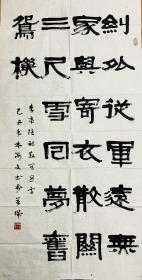 劍外從軍遠無
家與寄衣散關
三尺雪回夢舊
鴛機
李商隱詩散關遇雪
己丑年